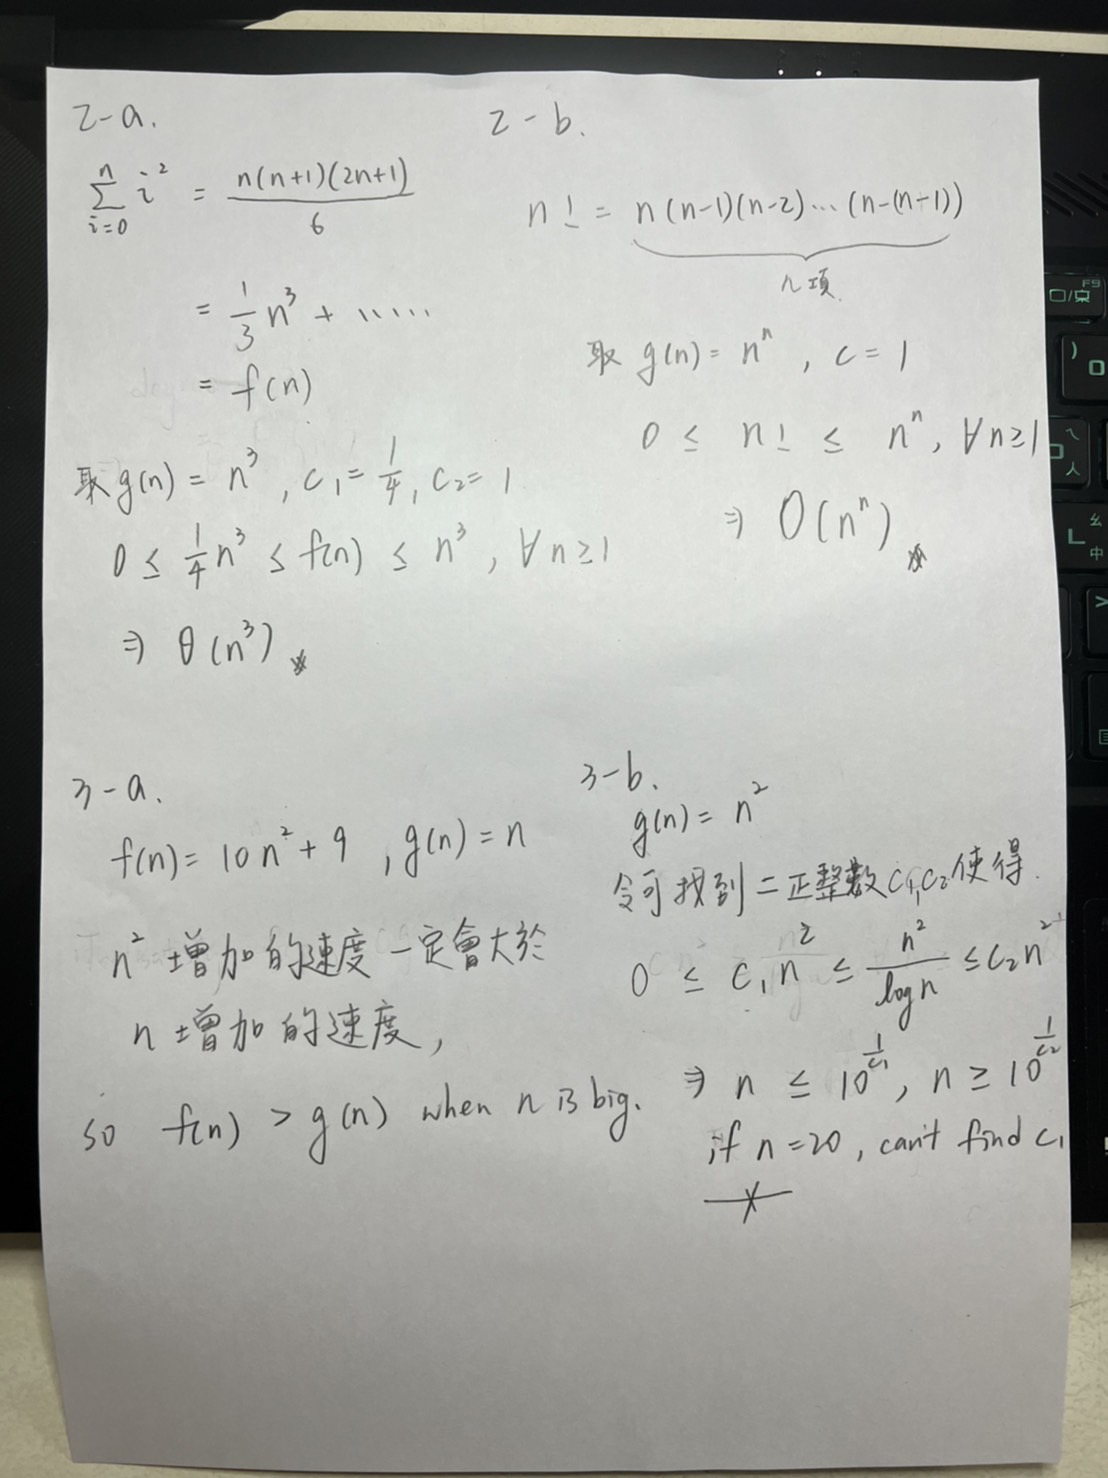 2-a.
\sum_{i=0}^{n} i^2 = \frac{n(n+1)(2n+1)}{6}
= \frac{1}{3} n^3 + .....
= f(n)
取 g(n) = n^3, c_1 = \frac{1}{4}, c_2 = 1
0 ≤ \frac{1}{4} n^3 ≤ f(n) ≤ n^3, ∀ n ≥ 1
⇒ θ(n^3)
2-b.
n! = n(n-1)(n-2)...(n-(n-1))
n項
取 g(n) = n^n, c = 1
0 ≤ n! ≤ n^n, ∀ n ≥ 1
⇒ O(n^n)
3-a.
f(n) = 10n^2 + 9, g(n) = n
n^2 增加的速度一定會大於
n 增加的速度,
so f(n) > g(n) when n is big.
3-b.
g(n) = n^2
令可找到二正整數 c_1, c_2 使得
0 ≤ c_1 n^2 ≤ \frac{n^2}{log n} ≤ c_2 n^2
⇒ n ≤ 10^{\frac{1}{c_1}}, n ≥ 10^{\frac{1}{c_2}}
if n = 20, can't find c_1
F9